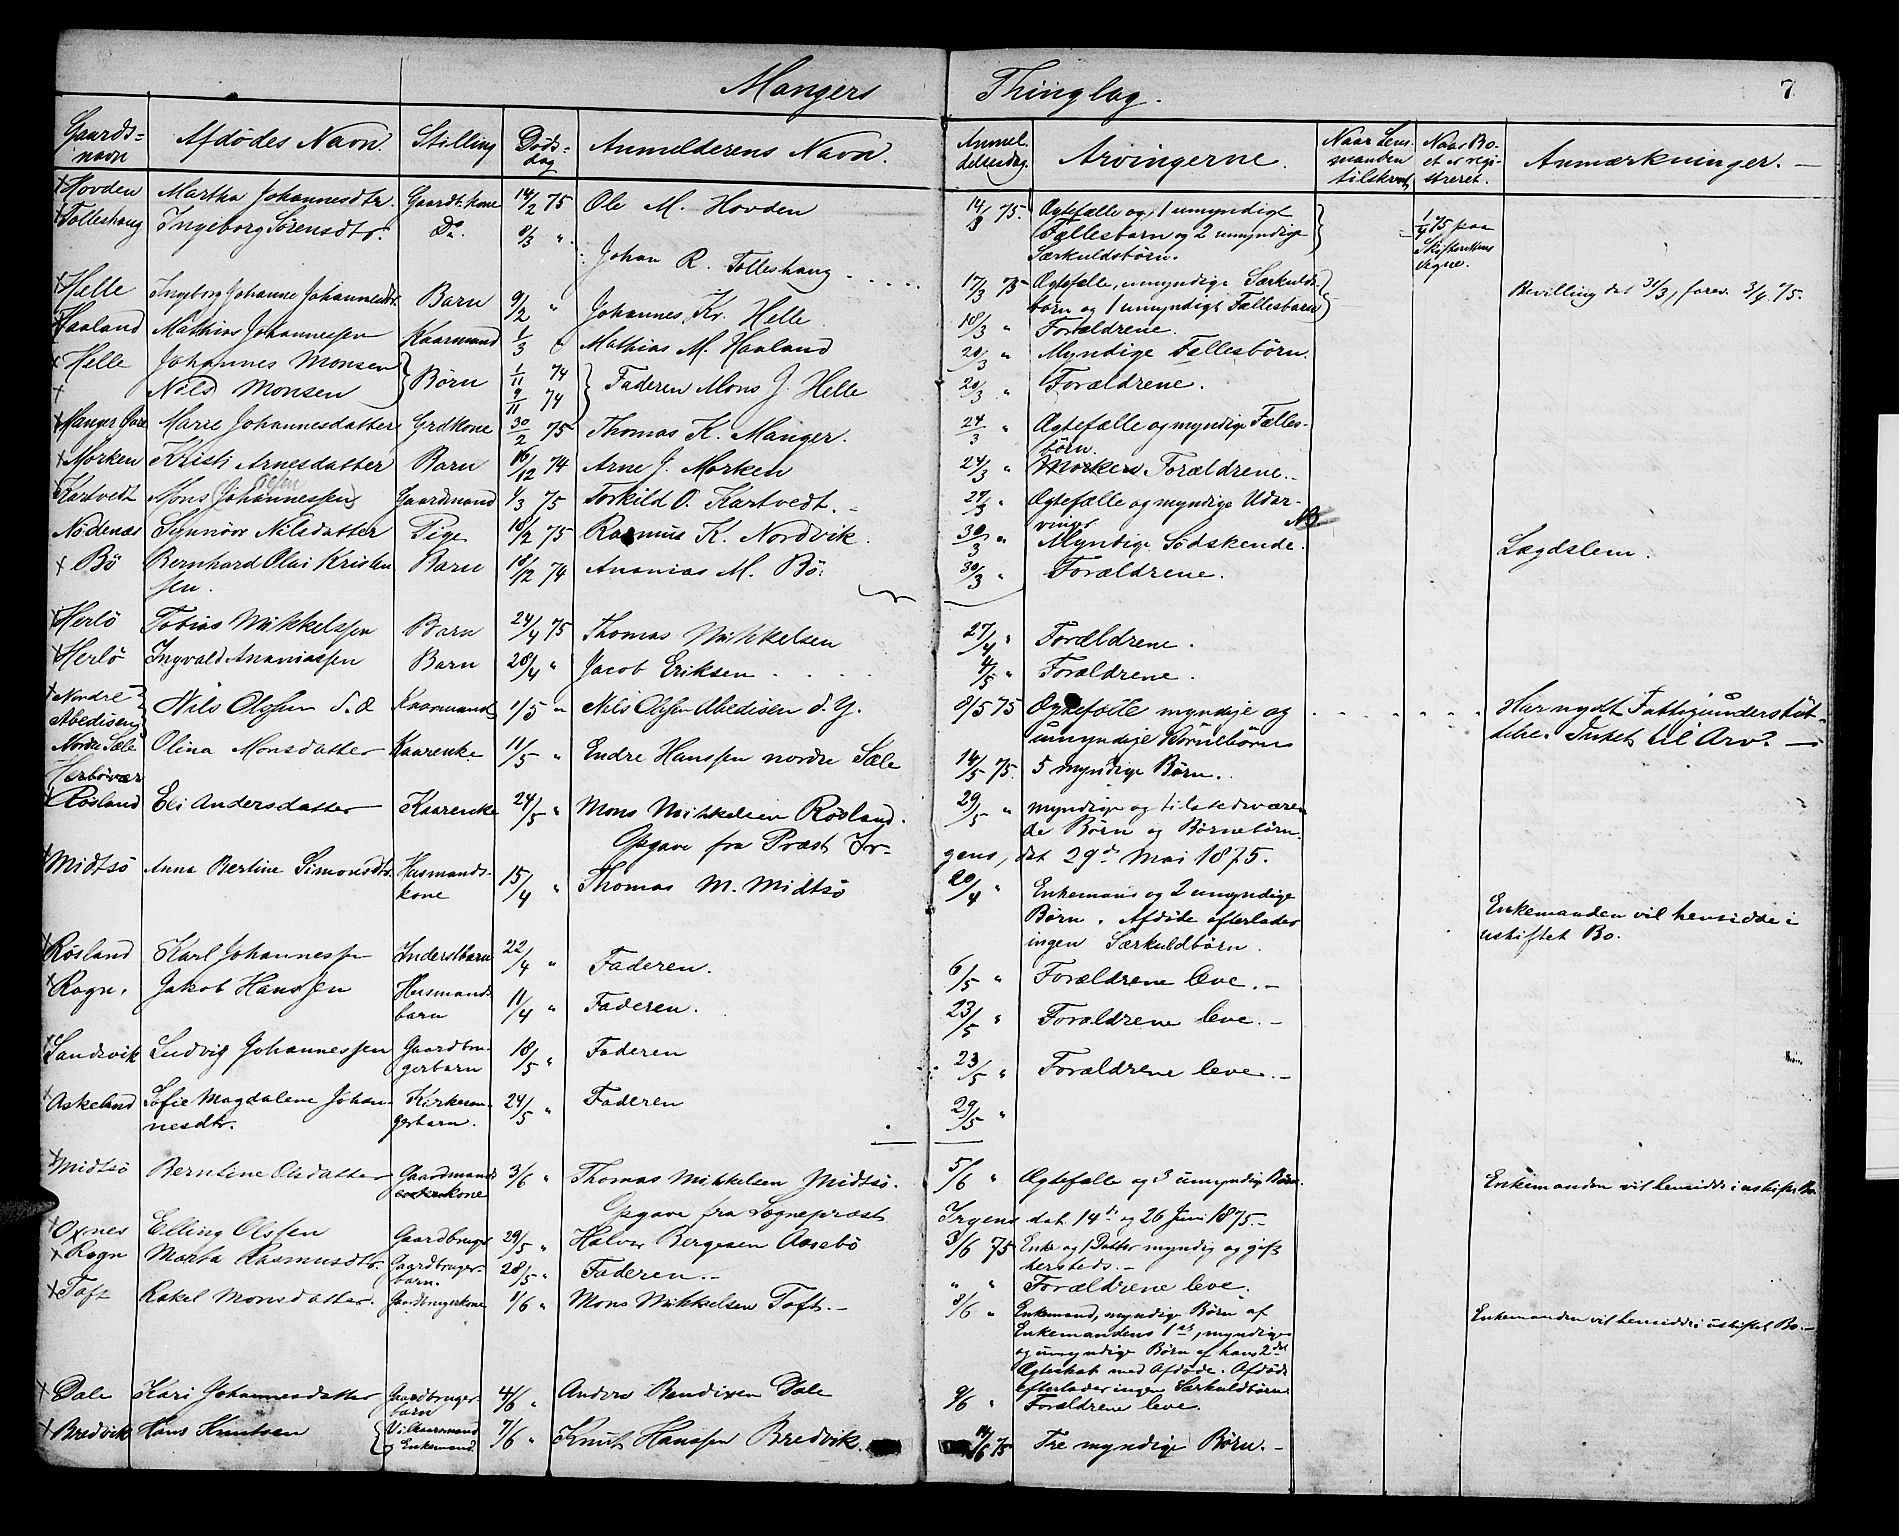 Mangers Thinglag. 7
Gaards=navn Afdødes Navn. Stilling Døds=dag Anmelderens Navn. Anmeldelsesdag. Arvingerne. Naar Lensmanden tilskrevet Naar Boet er registreret. Anmærkninger. —
x Hovden Martha Johannesdtr. Gaardk.kone 14/2 75 Ole M. Hovden 14/3 75. Ægtefælle og 1 umyndigt
Fællesbarn og 2 umyndige
Særkuldsbørn. 1/4 75 paa Skifterettens Vegne.
x Tolleshaug Ingeborg Sørensdtr. Do. 8/3 " Johan R. Tolleshaug 17/3 75 Ægtefælle, umyndige Særkulds-
børn og 1 umyndigt Fællesbarn Bevilling dat 31/3, forev. 3/4 75.
x Helle Ingeborg Johanne Johannesdtr. Barn 9/2 " Johannes Kr. Helle 18/3 " Forældrene.
x Haaland Mathias Johannessen Kaarmand 1/3 " Mathias M. Haaland 20/3 " Myndige Fællesbørn.
x Helle Johannes Monsen Børn 1/11 74 Faderen Mons J. Helle 20/3 " Forældrene.
x Nils Monsen 9/11 74
x Manger Marie Johannesdatter Grdkone 30/2 75 Thomas K. Manger. 24/3 " Ægtefælle og myndige Fælles-
børn.
x Morken Kristi Arnesdatter Barn 16/12 74 Arne J. Morken 24/3 " Forældrene.
x Kartvedt Mons (Johannessen) Gaardmand 1/3 75 Torkild O. Kartvedt. 27/3 " Ægtefælle og myndige Udar-
vinger NB.
Nodenæs Synnöv Nilsdatter Pige 10/2 75 Rasmus K. Nordvik. 30/3 " Myndige Södskende. Lægdslem.
x Bö Bernhard Olai Kristen- Barn 18/12 74 Ananias M. Bö. 30/3 " Forældrene.
sen.
x Herlö Tobias Mikkelssen Barn 24/4 75 Thomas Mikkelsen 27/4 " Forældrene.
x Herlö Ingvald Ananiassen Barn 28/4 " Jacob Eriksen 4/5 " Forældrene.
x Nordre Abedisen Nils Olssen d. Æ Kaarmand 1/5 " Nils Olssen Abedisen d. Y. 9/5 75 Ægtefælle myndige og
umyndige Børnebörn Har nydt Fattigunderstöt-
telse. Intet til Arv? —
Nordre Sæle Olina Monsdatter Kaarenke 11/5 " Endre Hanssen nordre Sæle 14/5 75. 5 myndige Børn.
Herbövær
x Røsland Eli Andersdatter Kaarenke 24/5 " Mons Mikkelsen Røsland. 29/5 " myndige og tilstedeværen-
de Børn og Børnebörn.
Opgave fra Præst Ir-
gens, dat 29de Mai 1875.
x Midtsö Anna Bertine Simonsdtr. Husmands- kone 15/4 " Thomas M. Midtsö 20/4 " Enkemand og 2 umyndige
Børn. Afdøde efterlader
ingen Særkuldbørn. Enkemanden vil hensidde i
uskiftet Bo.
x Røsland Karl Johannessen Inderstbarn 22/4 " Faderen. 6/5 " Forældrene leve. —
x Rogn. Jakob Hanssen Husmands barn 11/4 " Faderen. 23/5 " Forældrene leve. —
x Sandvik Ludvig Johannessen Gaardbru- gerbarn 18/5 " Faderen 23/5 " Forældrene leve. —
x Askeland Sofie Magdalene Johan- Kirkesan- 24/5 " Faderen 29/5 "
nesdtr. gerbarn.
x Midtsö Berntine Olsdatter Gaardmands kone 3/6 " Thomas Mikkelsen Midtsö. 5/6 " Ægtefælle og 3 umyndige Børn. Enkemanden vil hensidde i uskiftet Bo.
Opgave fra Sognepræst
Irgens dat 14de og 26 Juni 1875. —
x Oxnes Elling Olssen Gaardbruger 29/5 " Halvor Bergesen Aasebö 3/6 75 Enke og 1 Datter myndig og gift
hersteds. —
x Rogn Marta Rasmusdtr. Gaardbruger- barn. 28/5 " Faderen. — " " Forældrene leve.
x Toft Rakel Monsdatter. Gaardbrugerkone 1/6 " Mons Mikkelsen Toft. — 8/6 " Enkemand, myndige Børn af
Enkemandens 1ste, myndige
og umyndige Børn af hans 2det
Ægteskab med Afdøde. Afdøde
efterlader ingen Særkuldbørn Enkemanden vil hensidde i uskiftet Bo. —
x Dale Kari Johannesdatter Gaardbruger- barn 4/6 " Anders Bendixen Dale 9/6 " Forældrene leve.
x Bredvik Hans Knutsen Vilkaarsmand Enkemand. 7/6 " Knut Hanssen Bredvik. 14/6 75 Tre myndige Børn. —